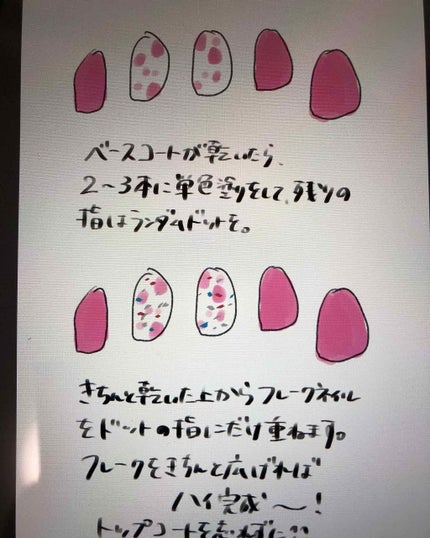 ベースコートが乾いたら、
2〜3本に単色塗りをして、残りの
指はランダムドットを。
きちんと乾いた上からフレークネイル
をドットの指にだけ重ねます。
フレークをきちんと広げれば
ハイ完成〜!
トップコートを忘れずに!!